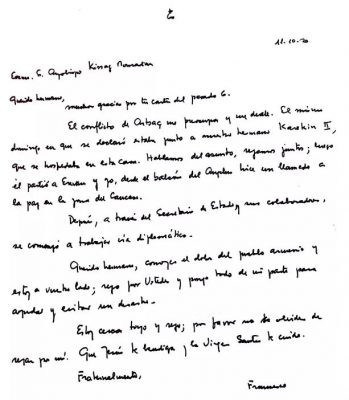 11-10-20
Excmo. S. Arzobispo Kissag Mouradian
Querido hermano,
muchas gracias por tu carta del pasado 6.
El conflicto de Artsaj me preocupa y me duele. El mismo
domingo en que se declaró estaba junto a nuestro hermano Karekin II,
que se hospedaba en esta casa. Hablamos del asunto, rezamos juntos; luego
él partió a Erevan y yo, desde el balcón del Angelus hice un llamado a
la paz en la zona del Caucaso.
Después, a través del Secretario de Estado y sus colaboradores,
se comenzó a trabajar vía diplomática.
Querido hermano, comparto el dolor del pueblo armenio y
estoy a vuestro lado; rezo por Ustedes y pongo todo de mi parte para
ayudar y evitar un desastre.
Estoy cerca tuyo y rezo; por favor no te olvides de
rezar por mí. Que Jesús te bendiga y la Virgen Santa te cuide.
Fraternalmente,
Francisco